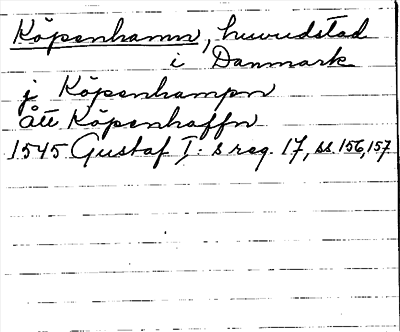 Köpenhamn, huvudstad
i Danmark
j Köpenhampn
ått Köpenhaffn
1545 Gustaf I: s reg. 17, ss. 156, 157